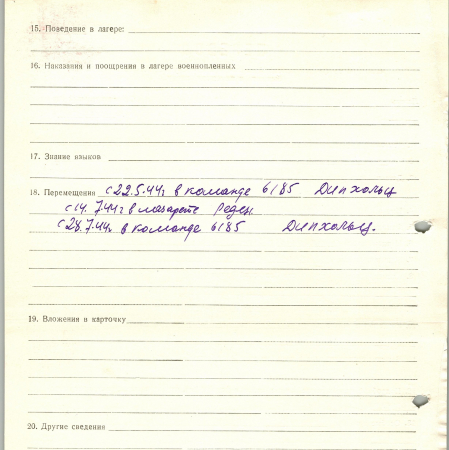 15. Поведение в лагере:
16. Наказания и поощрения в лагере военнопленных
17. Знание языков
18. Перемещения с 22.5.44г в команде 6185 Дипхольц
с 14.7.44г в лазарете Реден
с 28.7.44г. в команде 6185 Дипхольц.
19. Вложения в карточку
20. Другие сведения